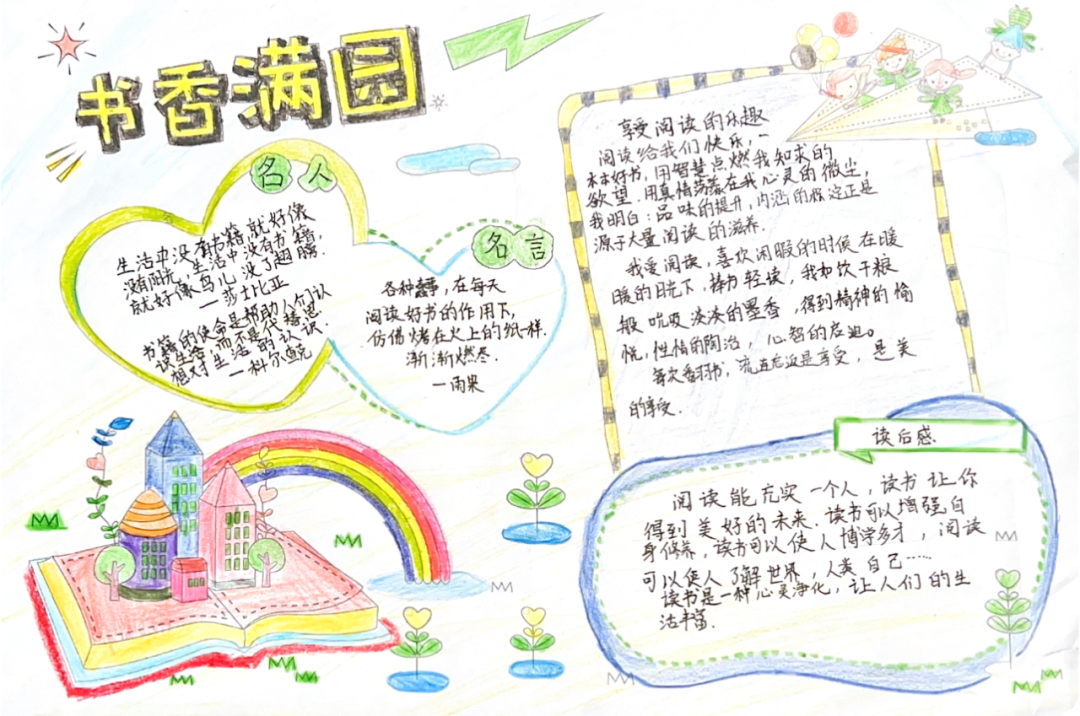 书香满园
名人
生活中没有书籍就好像
没有阳光,生活中没有书籍,
就好像鸟儿没了翅膀.
—莎士比亚
书籍的使命是帮助人们认
识生活,而不是代替思
想对生活的认识.
—科尔
名言
各种蠢事,在每天
阅读好书的作用下,
仿佛烤在火上的纸一样.
渐渐燃尽.
—雨果
享受阅读的乐趣
阅读给我们快乐,一
本本好书,用智慧点燃我知求的
欲望.用真情荡落在我心灵的微尘,
我明白:品味的提升,内涵的 正是
源于大量阅读的滋养.
我爱阅读,喜欢闲暇的时候在暖
暖的日光下,捧书轻读,我如饮干粮
般吮吸淡淡的墨香,得到精神的愉
悦,性情的陶冶,心智的启迪。
每次翻书,流连忘返是享受,是美
的享受.
读后感.
阅读能充实一个人,读书让你
得到美好的未来.读书可以增强自
身修养,读书可以使人博学多才,阅读
可以使人了解世界,人类自己……
读书是一种心灵净化,让人们的生
活丰富.